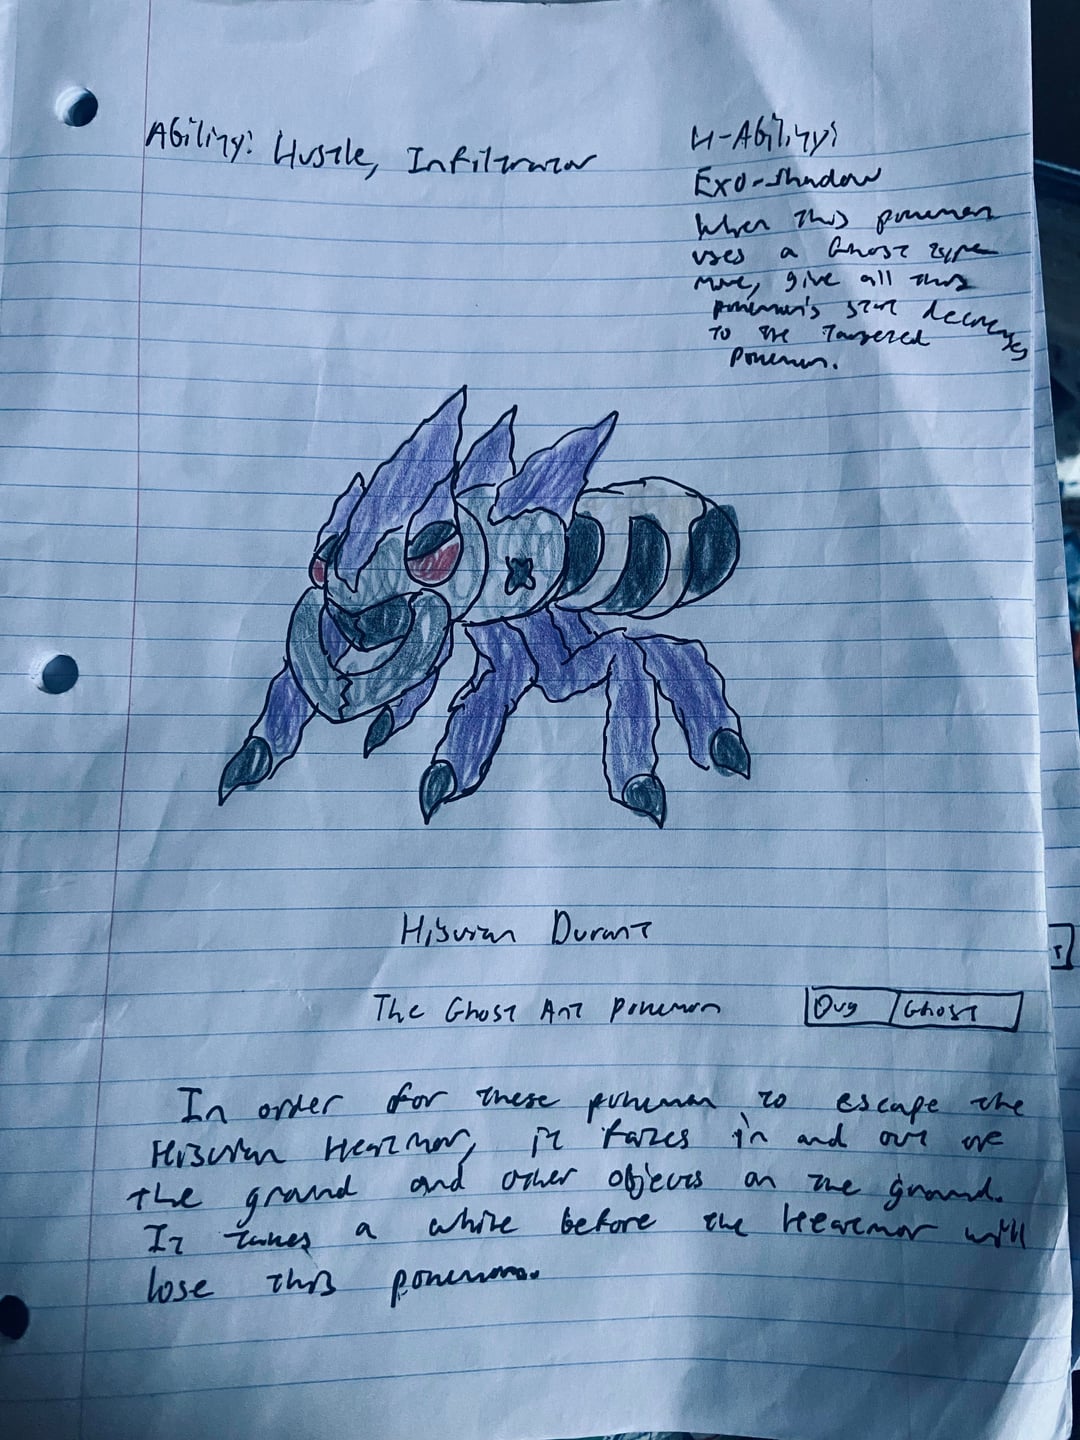 Ability: Hustle, Infiltrator
H-Ability:
Exo-Shadow
When this pokemon
uses a Ghost type
move, give all this
pokemon's stat decreases
to the targeted
pokemon.
Hisuian Durant
The Ghost Ant Pokemon
Bug Ghost
In order for these pokemon to escape the
Hisuian Heatmor, it fazes in and out of
the ground and other objects on the ground.
It takes a while before the Heatmor will
lose this pokemon.